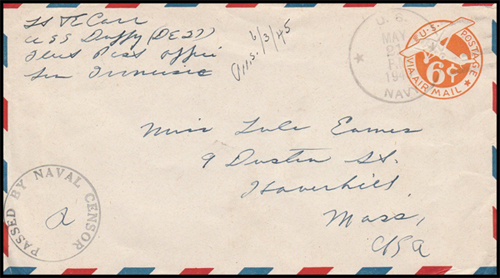 Lt TE Carr
USS Duffy (DE27)
Fleet Post Office
San Francisco
6/3/45
U. S.
MAY
21
194
NAVY
U.S. POSTAGE
6¢
VIA AIR MAIL
Miss Lule Eames
9 Dustin St.
Haverhill,
Mass,
USA
PASSED BY NAVAL CENSOR